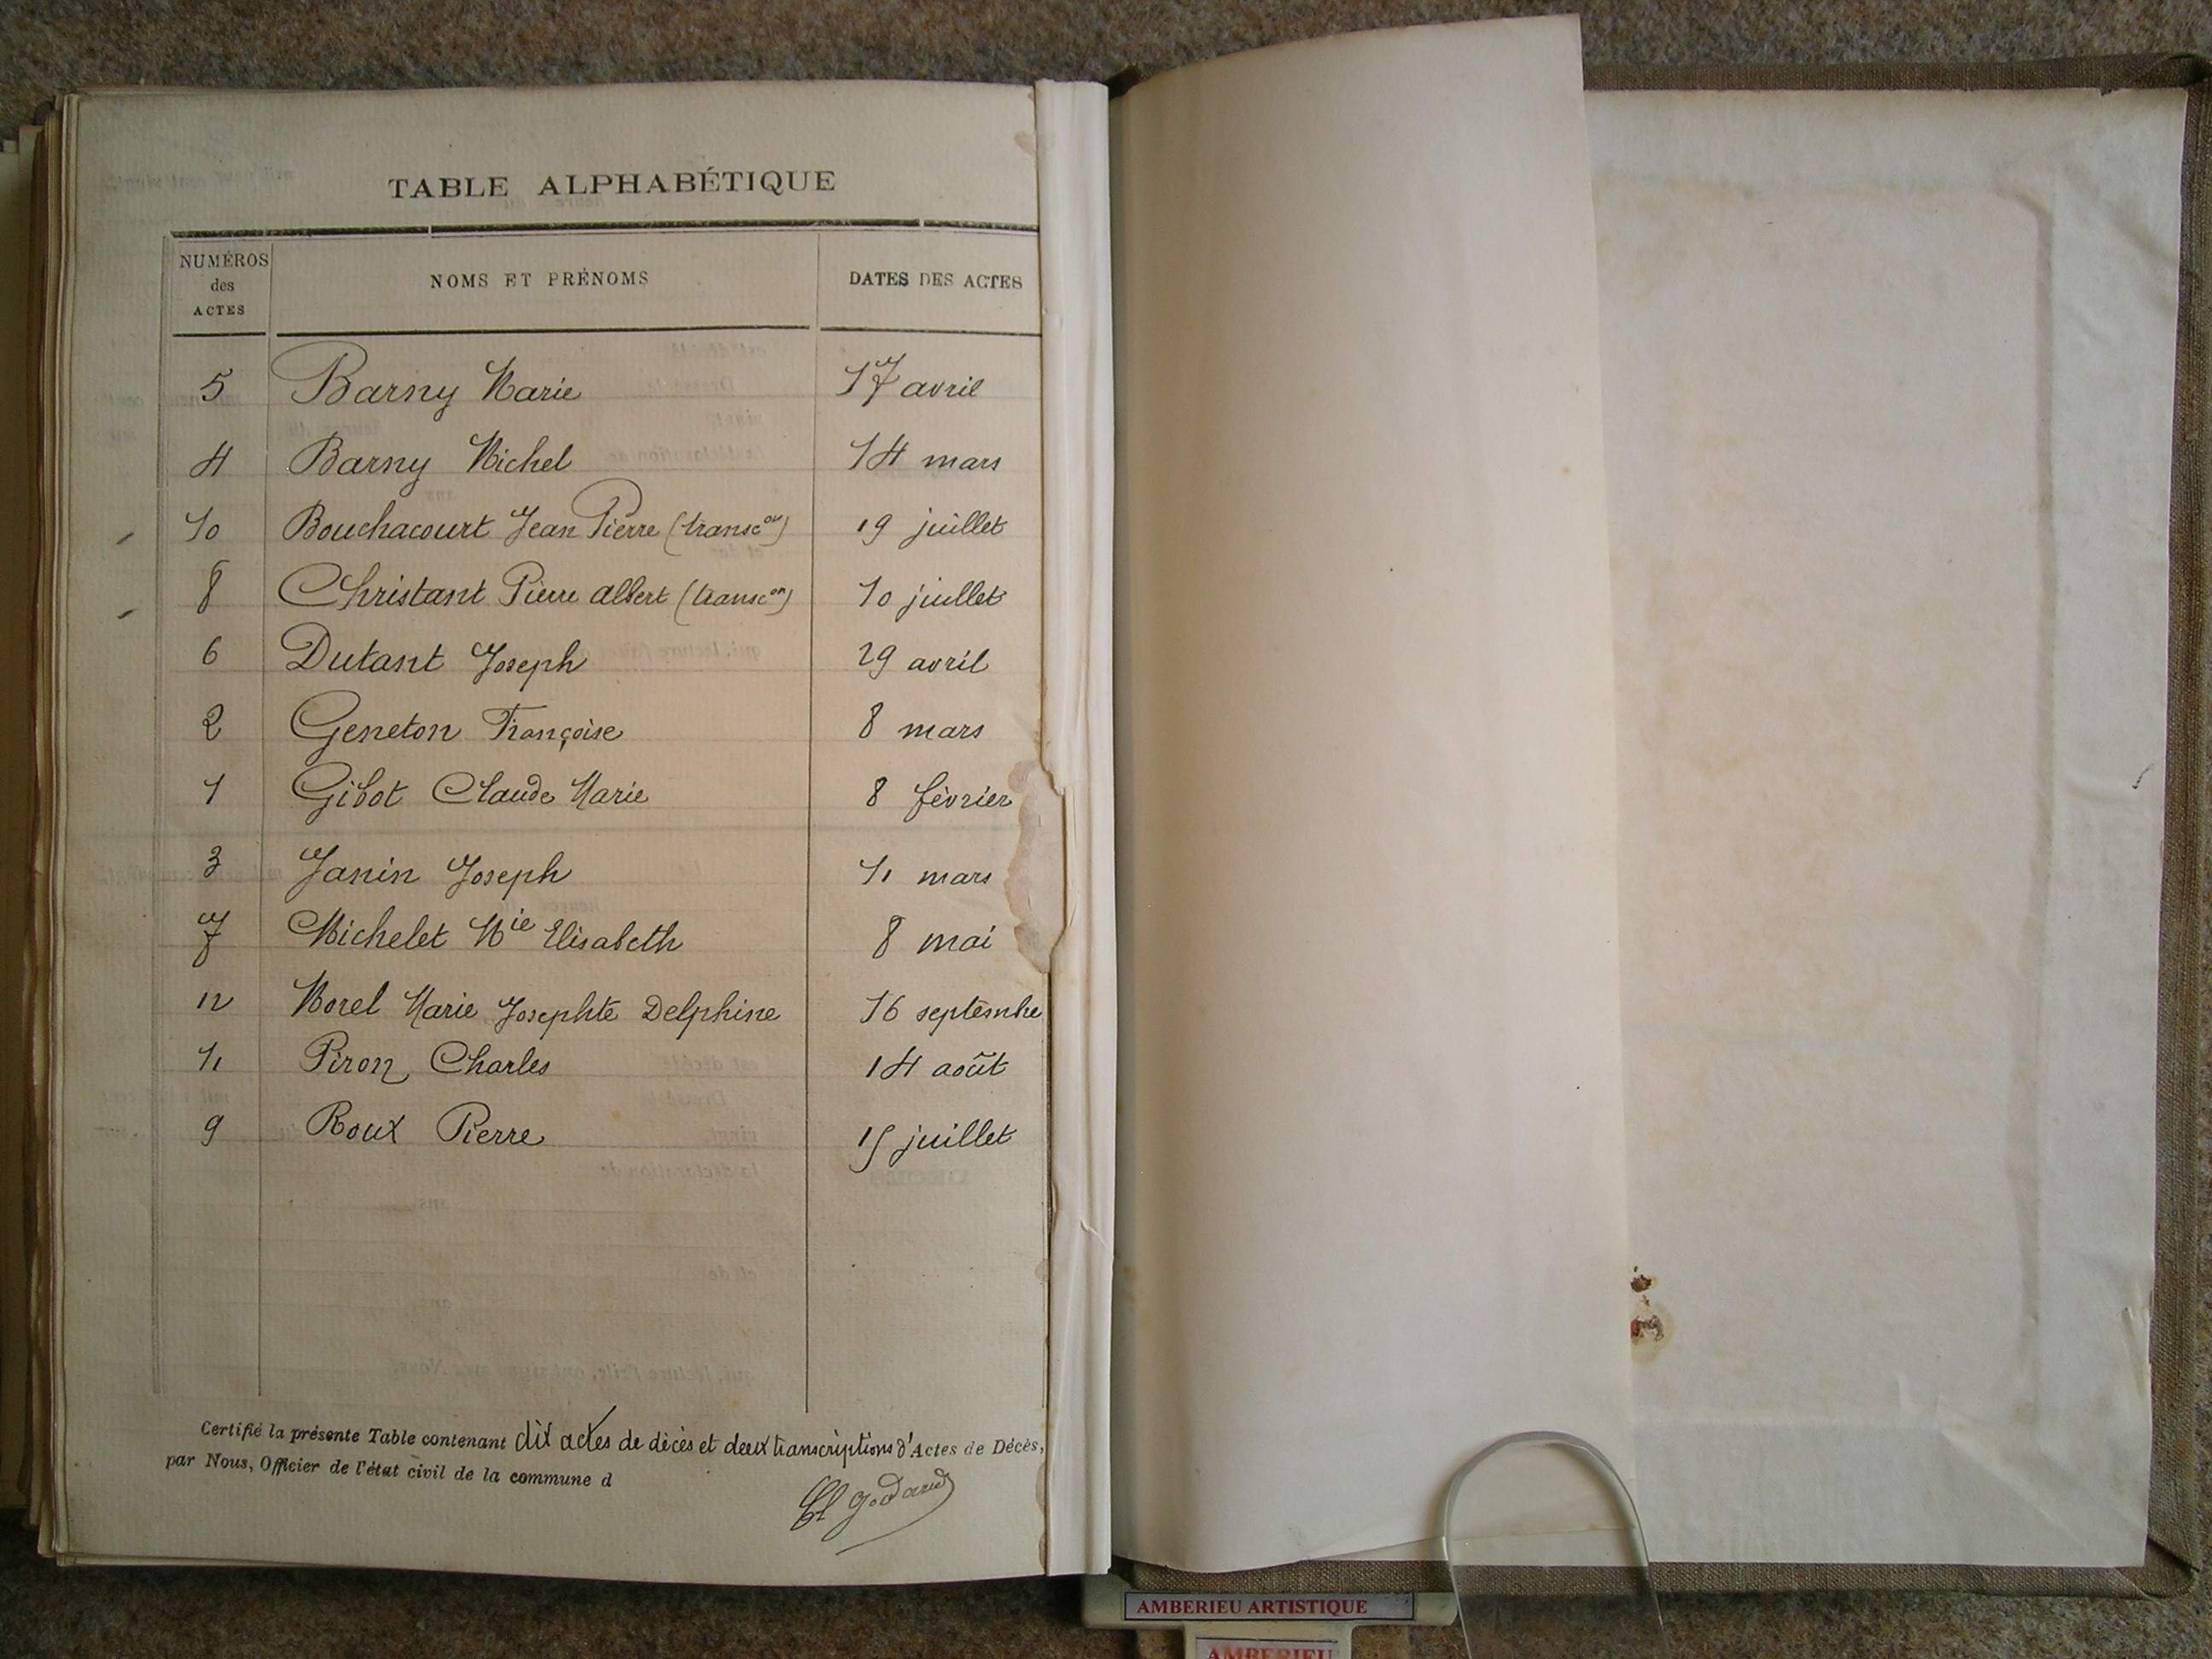 TABLE ALPHABÉTIQUE
NUMÉROS des ACTES NOMS ET PRÉNOMS DATES DES ACTES
5 Barny Marie 17 avril
4 Barny Michel 14 mars
10 Bouchacourt Jean Pierre (transcon) 19 juillet
8 Christant Pierre Albert (transcon) 10 juillet
6 Dutant Joseph 29 avril
2 Geneton Françoise 8 mars
1 Gibot Claude Marie 8 février
3 Janin Joseph 11 mars
7 Michelet Mie Elisabeth 8 mai
12 Morel Marie Josephte Delphine 16 septembre
11 Piron Charles 14 août
9 Roux Pierre 15 juillet
Certifié la présente Table contenant dix actes de décès et deux transcriptions d'Actes de Décès,
par Nous, Officier de l'état civil de la commune d
Cl Godard
AMBERIEU ARTISTIQUE
AMBERIEU